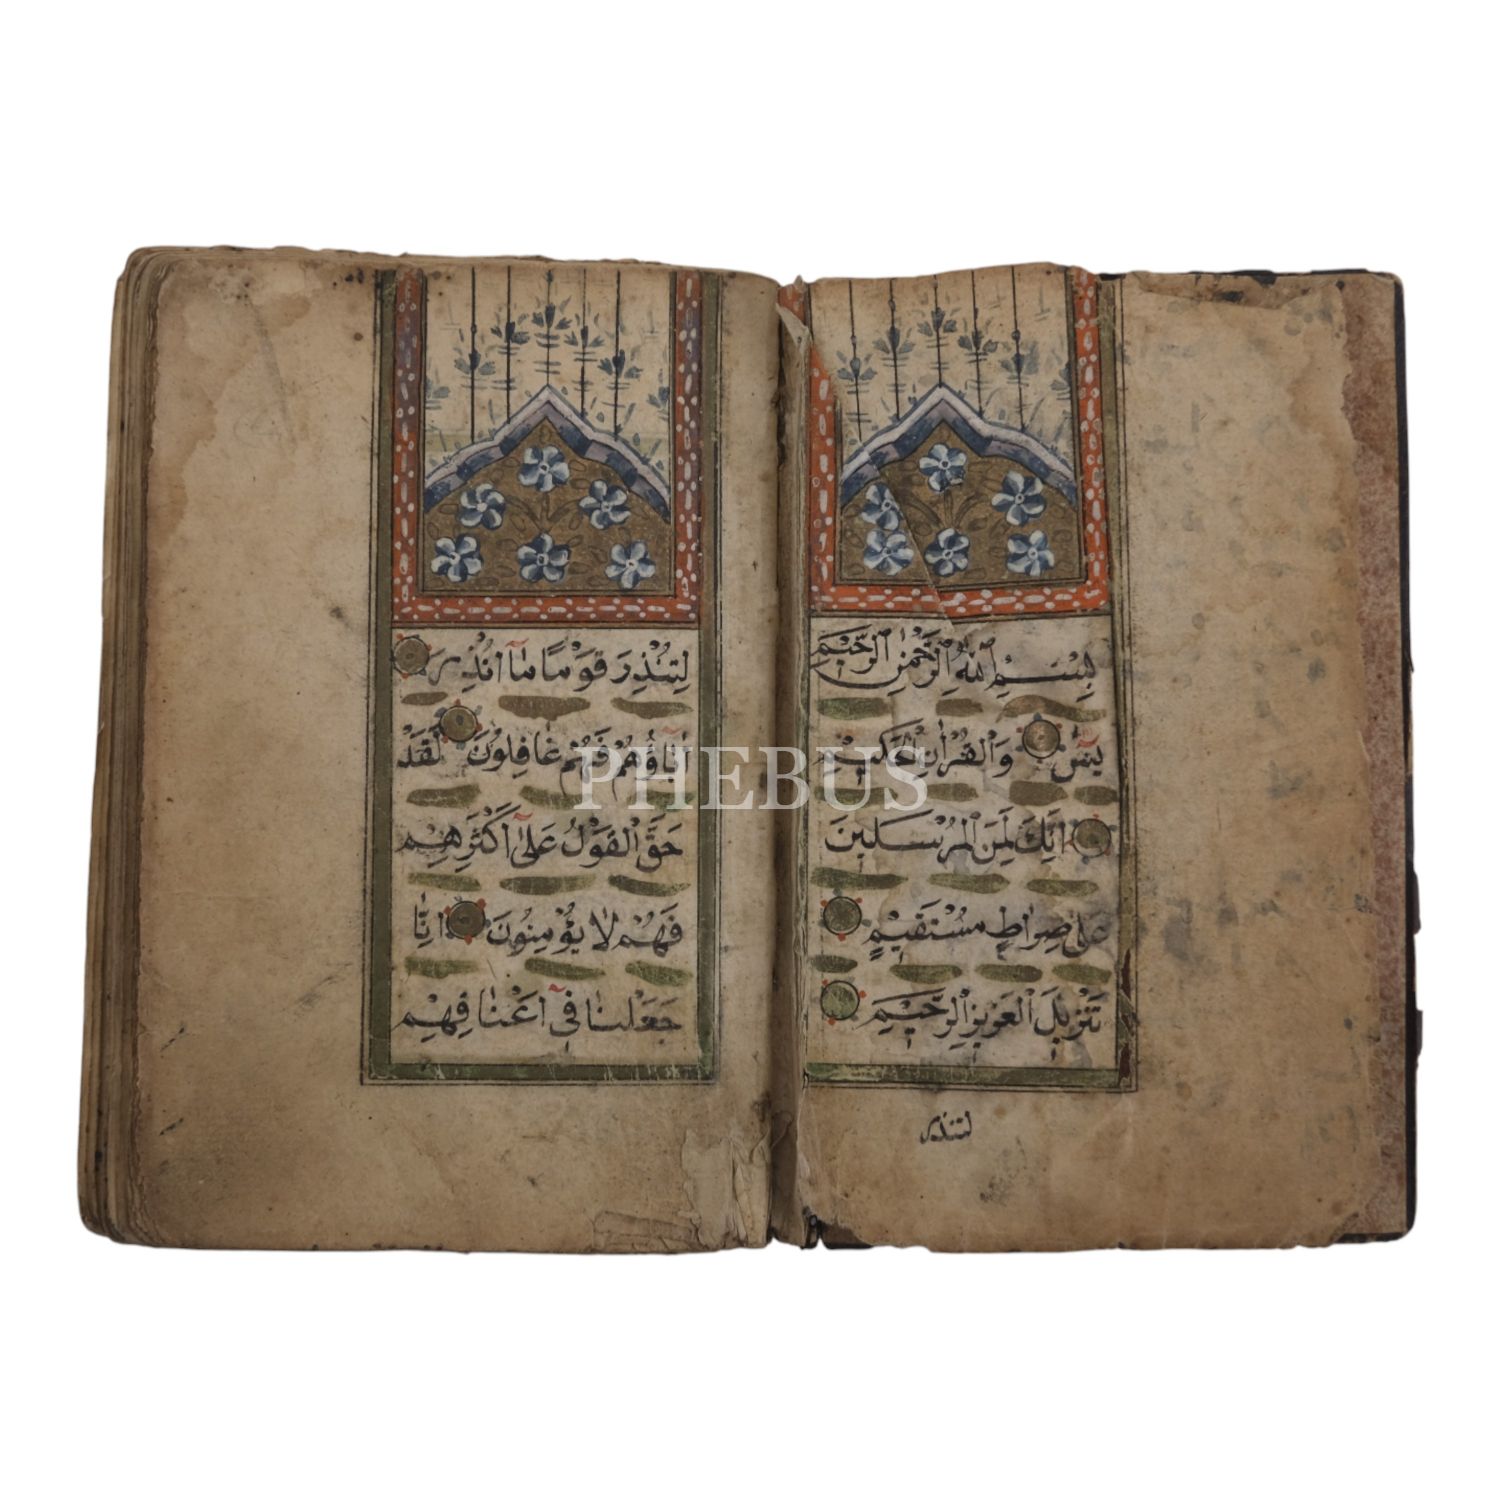 بِسْمِ اللهِ الرَّحْمٰنِ الرَّحِيمِ
يٰسٓ وَالْقُرْاٰنِ الْحَكِيمِ
اِنَّكَ لَمِنَ الْمُرْسَلِينَ
عَلٰى صِرَاطٍ مُسْتَقِيمٍ
تَنْزِيلَ الْعَزِيزِ الرَّحِيمِ
لتنذر
لِتُنْذِرَ قَوْمًا مَٓا اُنْذِرَ
اٰبَٓاؤُهُمْ فَهُمْ غَافِلُونَ لَقَدْ
حَقَّ الْقَوْلُ عَلٰٓى اَكْثَرِهِمْ
فَهُمْ لَا يُؤْمِنُونَ اِنَّا
جَعَلْنَا فٓى اَعْنَاقِهِمْ
PHEBUS